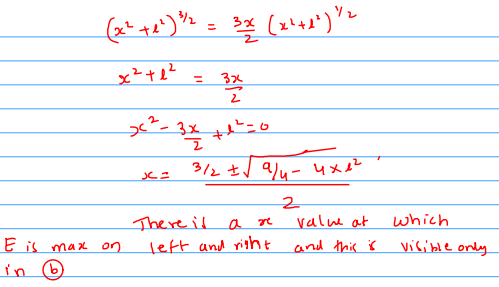 (x² + l²)^3/2 = 3x/2 (x² + l²)^1/2
x² + l² = 3x/2
x² - 3x/2 + l² = 0
x = (3/2 ± √(9/4 - 4 × l²))/2
There is a x value at which
E is max on left and right and this is visible only
in (b)